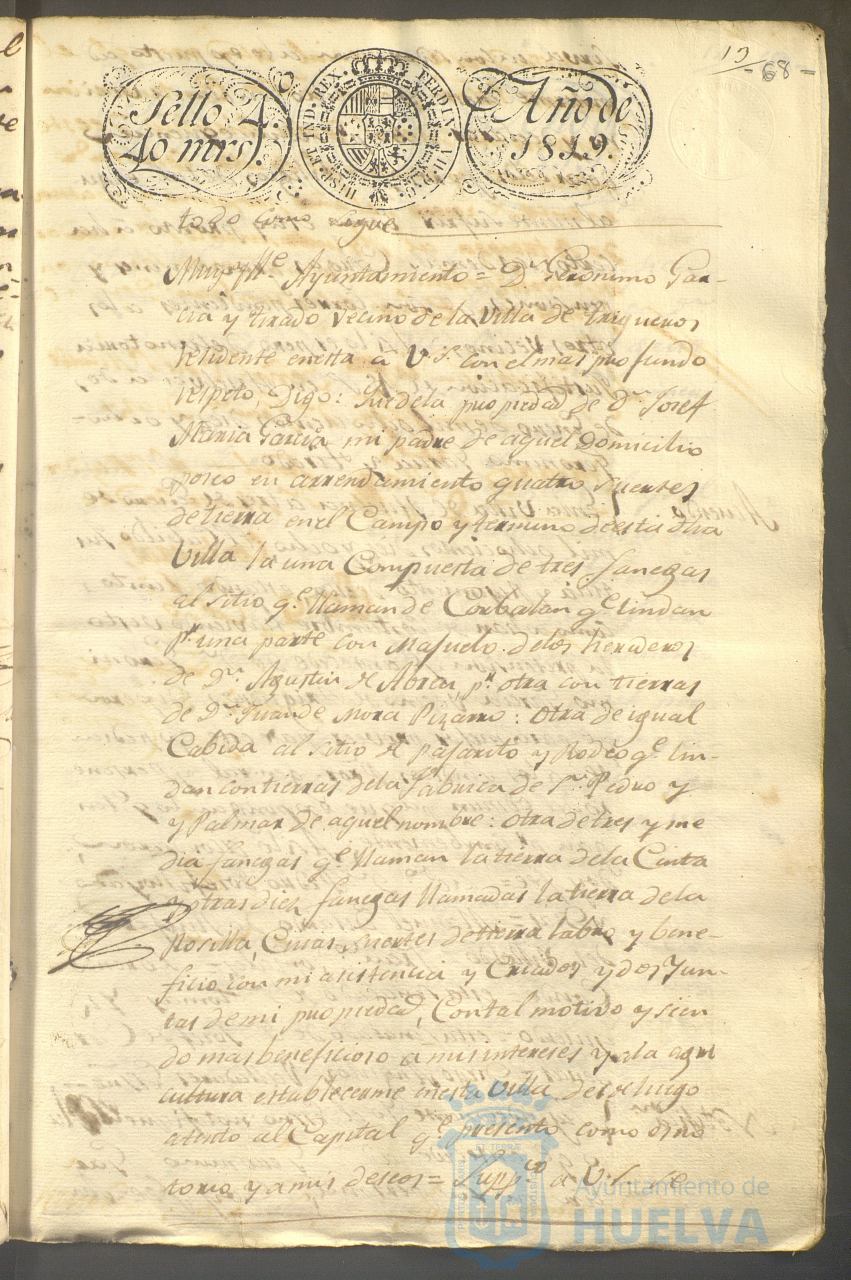 13
- 68 -
Sello 4.
40 mrs.
HISP. ET IND. REX. FERDIN. VII. D. G.
Año de
1819.
todo como sigue
Muy Ylle. Ayuntamiento = D. Geronimo Gar-
cia y tirado Vecino de la Villa de trigueros
residente en esta a V.S. con el mas profundo
respeto, Digo: Que de la propiedad de Dn. Josef
Maria Garcia mi padre de aquel Domicilio
poseo en arrendamiento quatro suertes
de tierra en el Campo y termino de esta dha
Villa la una Compuesta de tres fanegas
al sitio qe. llaman de Corbalan qe. lindan
pr. una parte con Majuelo de los herederos
de Dn. Agustin de Abreu pr. otra con tierras
de Dn. Juan de Mora Pizarro: otra de igual
Cabida al sitio de pajarito y Rodeo qe. lin-
dan con tierras de la fabrica de Sn. Pedro y
y Palmar de aquel nombre: otra de tres y me
dia fanegas qe. llaman la tierra de la Cinta
y otras diez fanegas llamadas la tierra de la
Rosilla, Cuias suertes de tierra labro y bene-
ficio con mi asistencia y Criados y dos Jun-
tas de mi propiedad, Con tal motivo y sien
do mas beneficioso a mis intereses y a la agri
cultura establecerme en esta Villa desde luego
atento al Capital qe. presento como dino
torio y a mis deseos = Suppco. a V.S. se
Ayuntamiento de
HUELVA